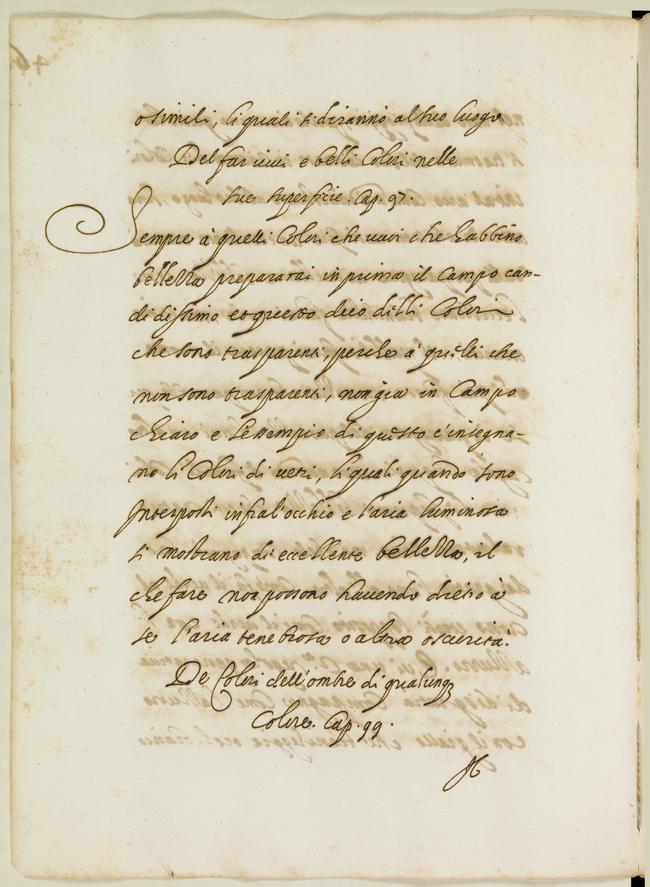 o simili, li quali si diranno al suo luogo
Del far vivi e belli Colori nelle
sue superficie. Cap. 97.
Sempre à quelli Colori che vuoi che habbino
bellezza prepararai in prima il Campo can-
didissimo et questo dico delli Colori
che sono trasparenti, perche a quelli che
non sono trasparenti, non gia in Campo
chiaro e l'essempio di questo c'insegna-
no li Colori di vetri, li quali quando sono
Interposti infra l'occhio e l'aria luminosa
si mostrano di eccellente bellezza, il
che fare non possono havendo dietro à
se l'aria tenebrosa o altra oscurità.
De Colori dell'ombre di qualunq
Colore. Cap. 99.
Il
46